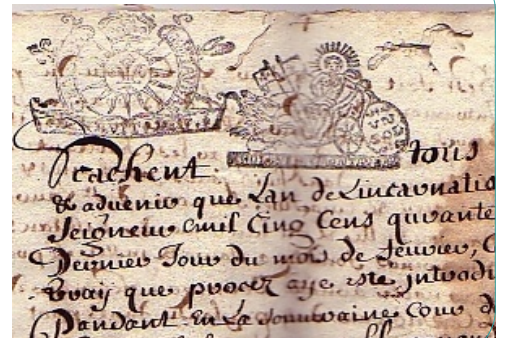 Scachent tous
& advenir que Lan de Lincarnatio
Seigneur mil Cinq Cens quarante
Dernier Jour du mois de feuvier,
Vray que procez aye este introdu
Pandant En La souuraine Cour d